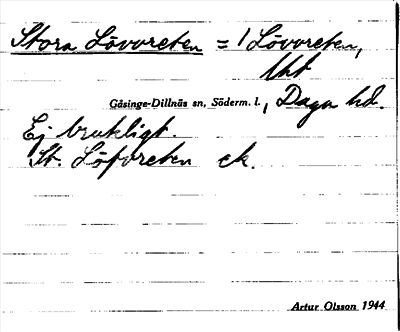 Stora Lövvreten = 1 Lövvreten,
Uht
Gåsinge-Dillnäs sn, Söderm. l., Daga hd.
Ej brukligt.
St. Löfvreten ek.
Artur Olsson 1944